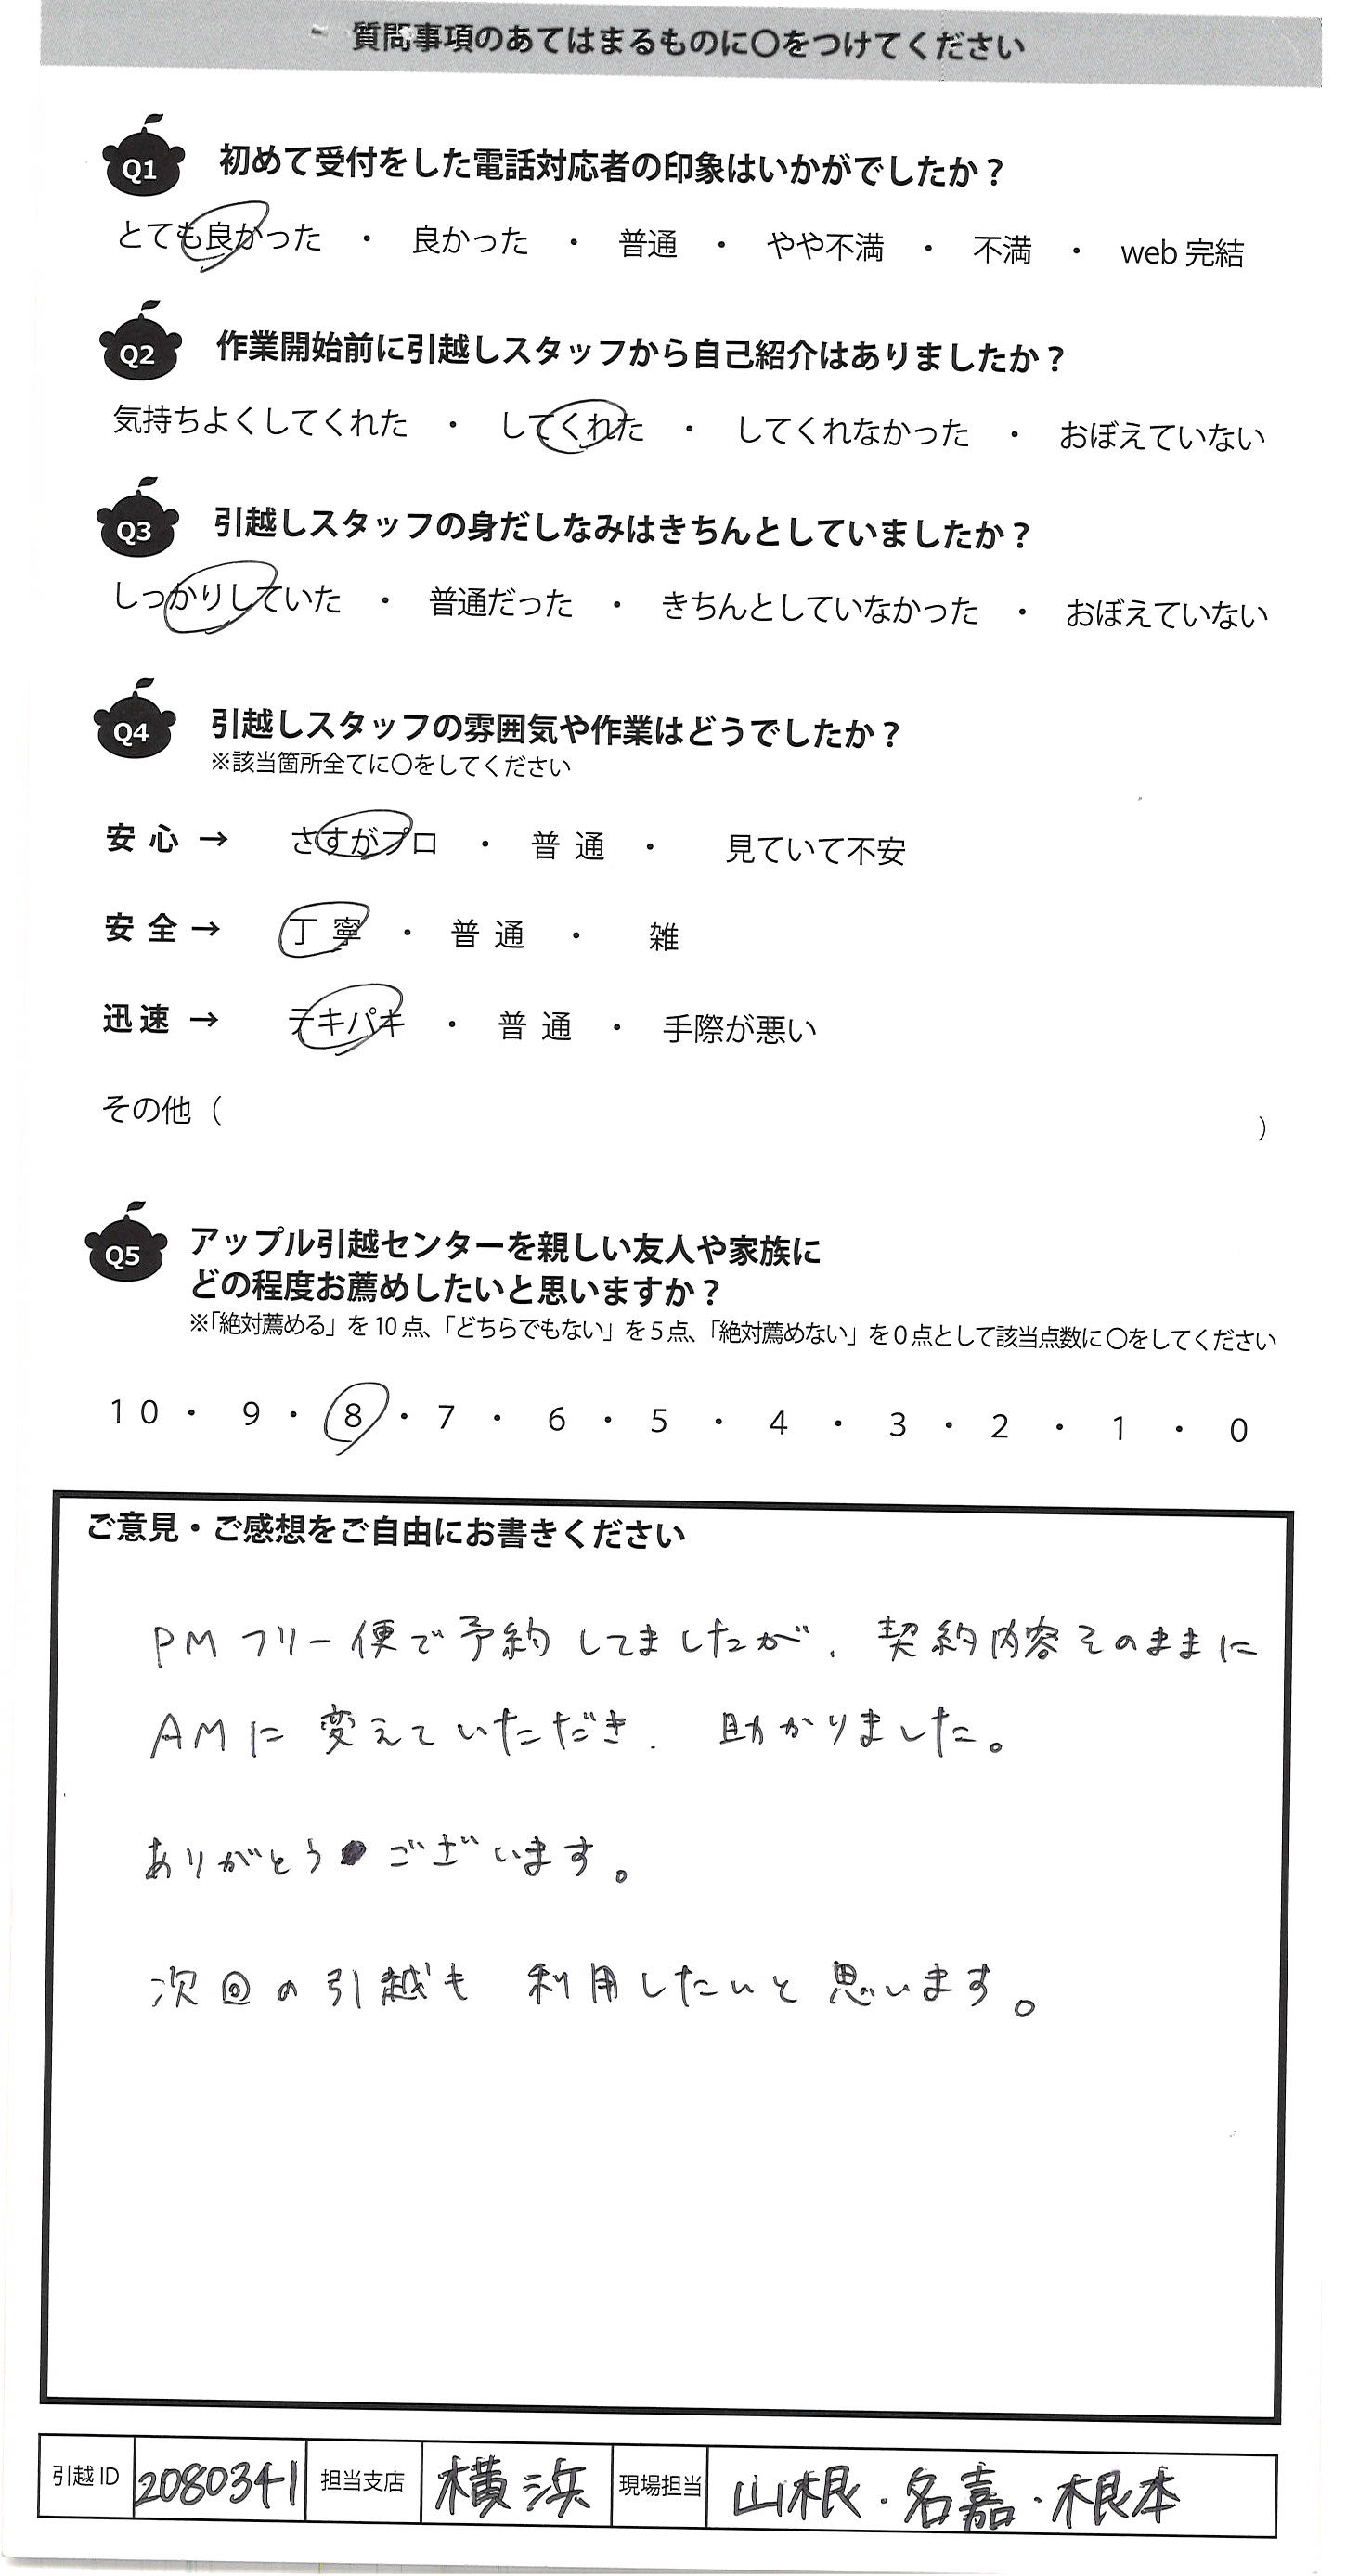 質問事項のあてはまるものに〇をつけてください
Q1 初めて受付をした電話対応者の印象はいかがでしたか？
とても良かった ・ 良かった ・ 普通 ・ やや不満 ・ 不満 ・ web 完結
Q2 作業開始前に引越しスタッフから自己紹介はありましたか？
気持ちよくしてくれた ・ してくれた ・ してくれなかった ・ おぼえていない
Q3 引越しスタッフの身だしなみはきちんとしていましたか？
しっかりしていた ・ 普通だった ・ きちんとしていなかった ・ おぼえていない
Q4 引越しスタッフの雰囲気や作業はどうでしたか？
※該当箇所全てに〇をしてください
安心 → さすがプロ ・ 普通 ・ 見ていて不安
安全 → 丁寧 ・ 普通 ・ 雑
迅速 → テキパキ ・ 普通 ・ 手際が悪い
その他（ ）
Q5 アップル引越センターを親しい友人や家族に
どの程度お薦めしたいと思いますか？
※「絶対薦める」を10点、「どちらでもない」を5点、「絶対薦めない」を0点として該当点数に〇をしてください
10 ・ 9 ・ 8 ・ 7 ・ 6 ・ 5 ・ 4 ・ 3 ・ 2 ・ 1 ・ 0
ご意見・ご感想をご自由にお書きください
PMフリー便で予約してましたが、契約内容そのままに
AMに変えていただき、助かりました。
ありがとうございます。
次回の引越も利用したいと思います。
引越ID 2080341 担当支店 横浜 現場担当 山根・名嘉・根本